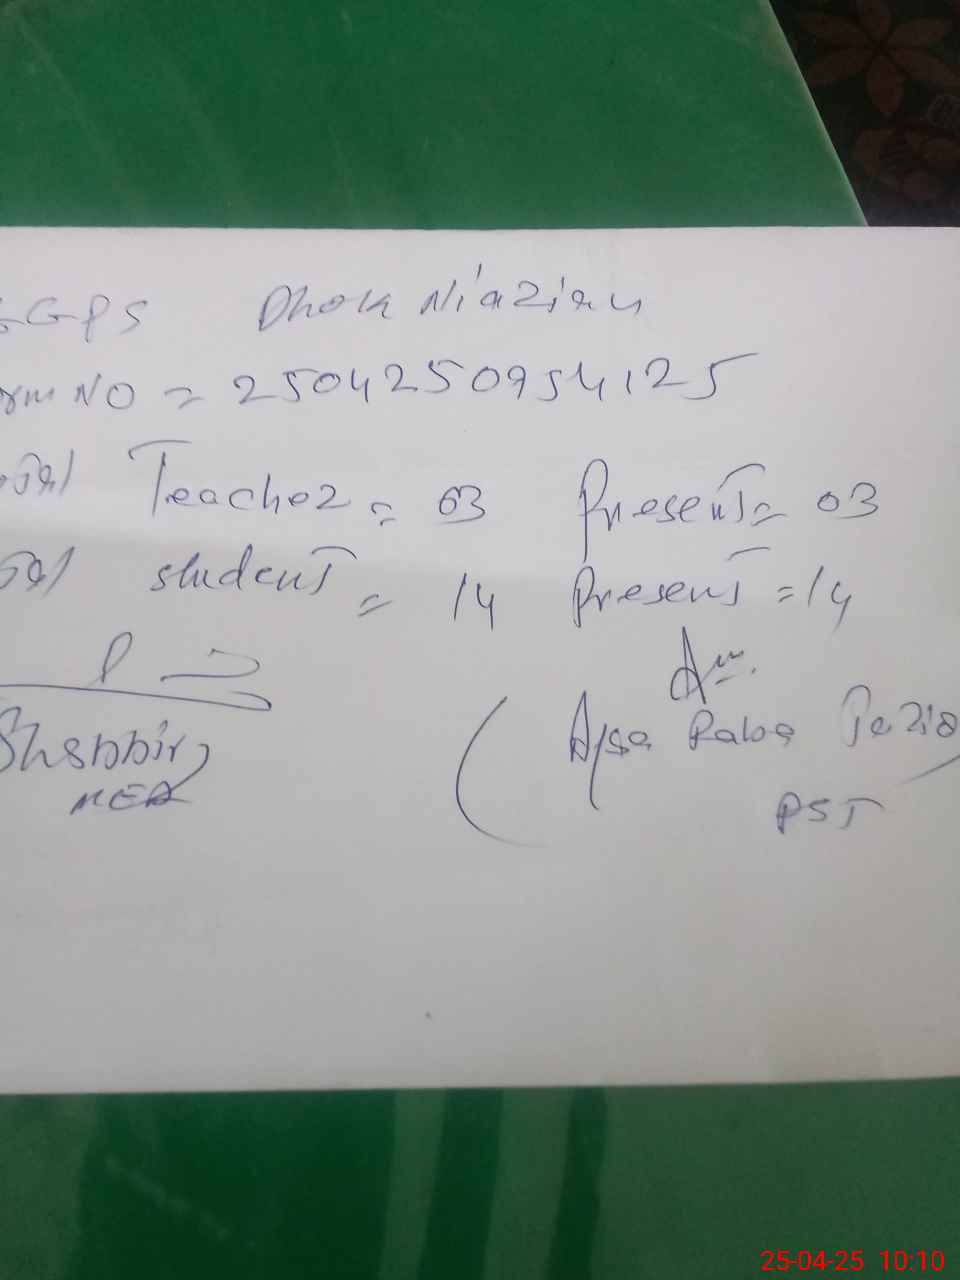 GGPS Dhok Niazian
orm NO = 2504250954125
otal Teacher = 03 Present = 03
otal student = 14 Present = 14
Shabbir
MEA
PST
25-04-25 10:10